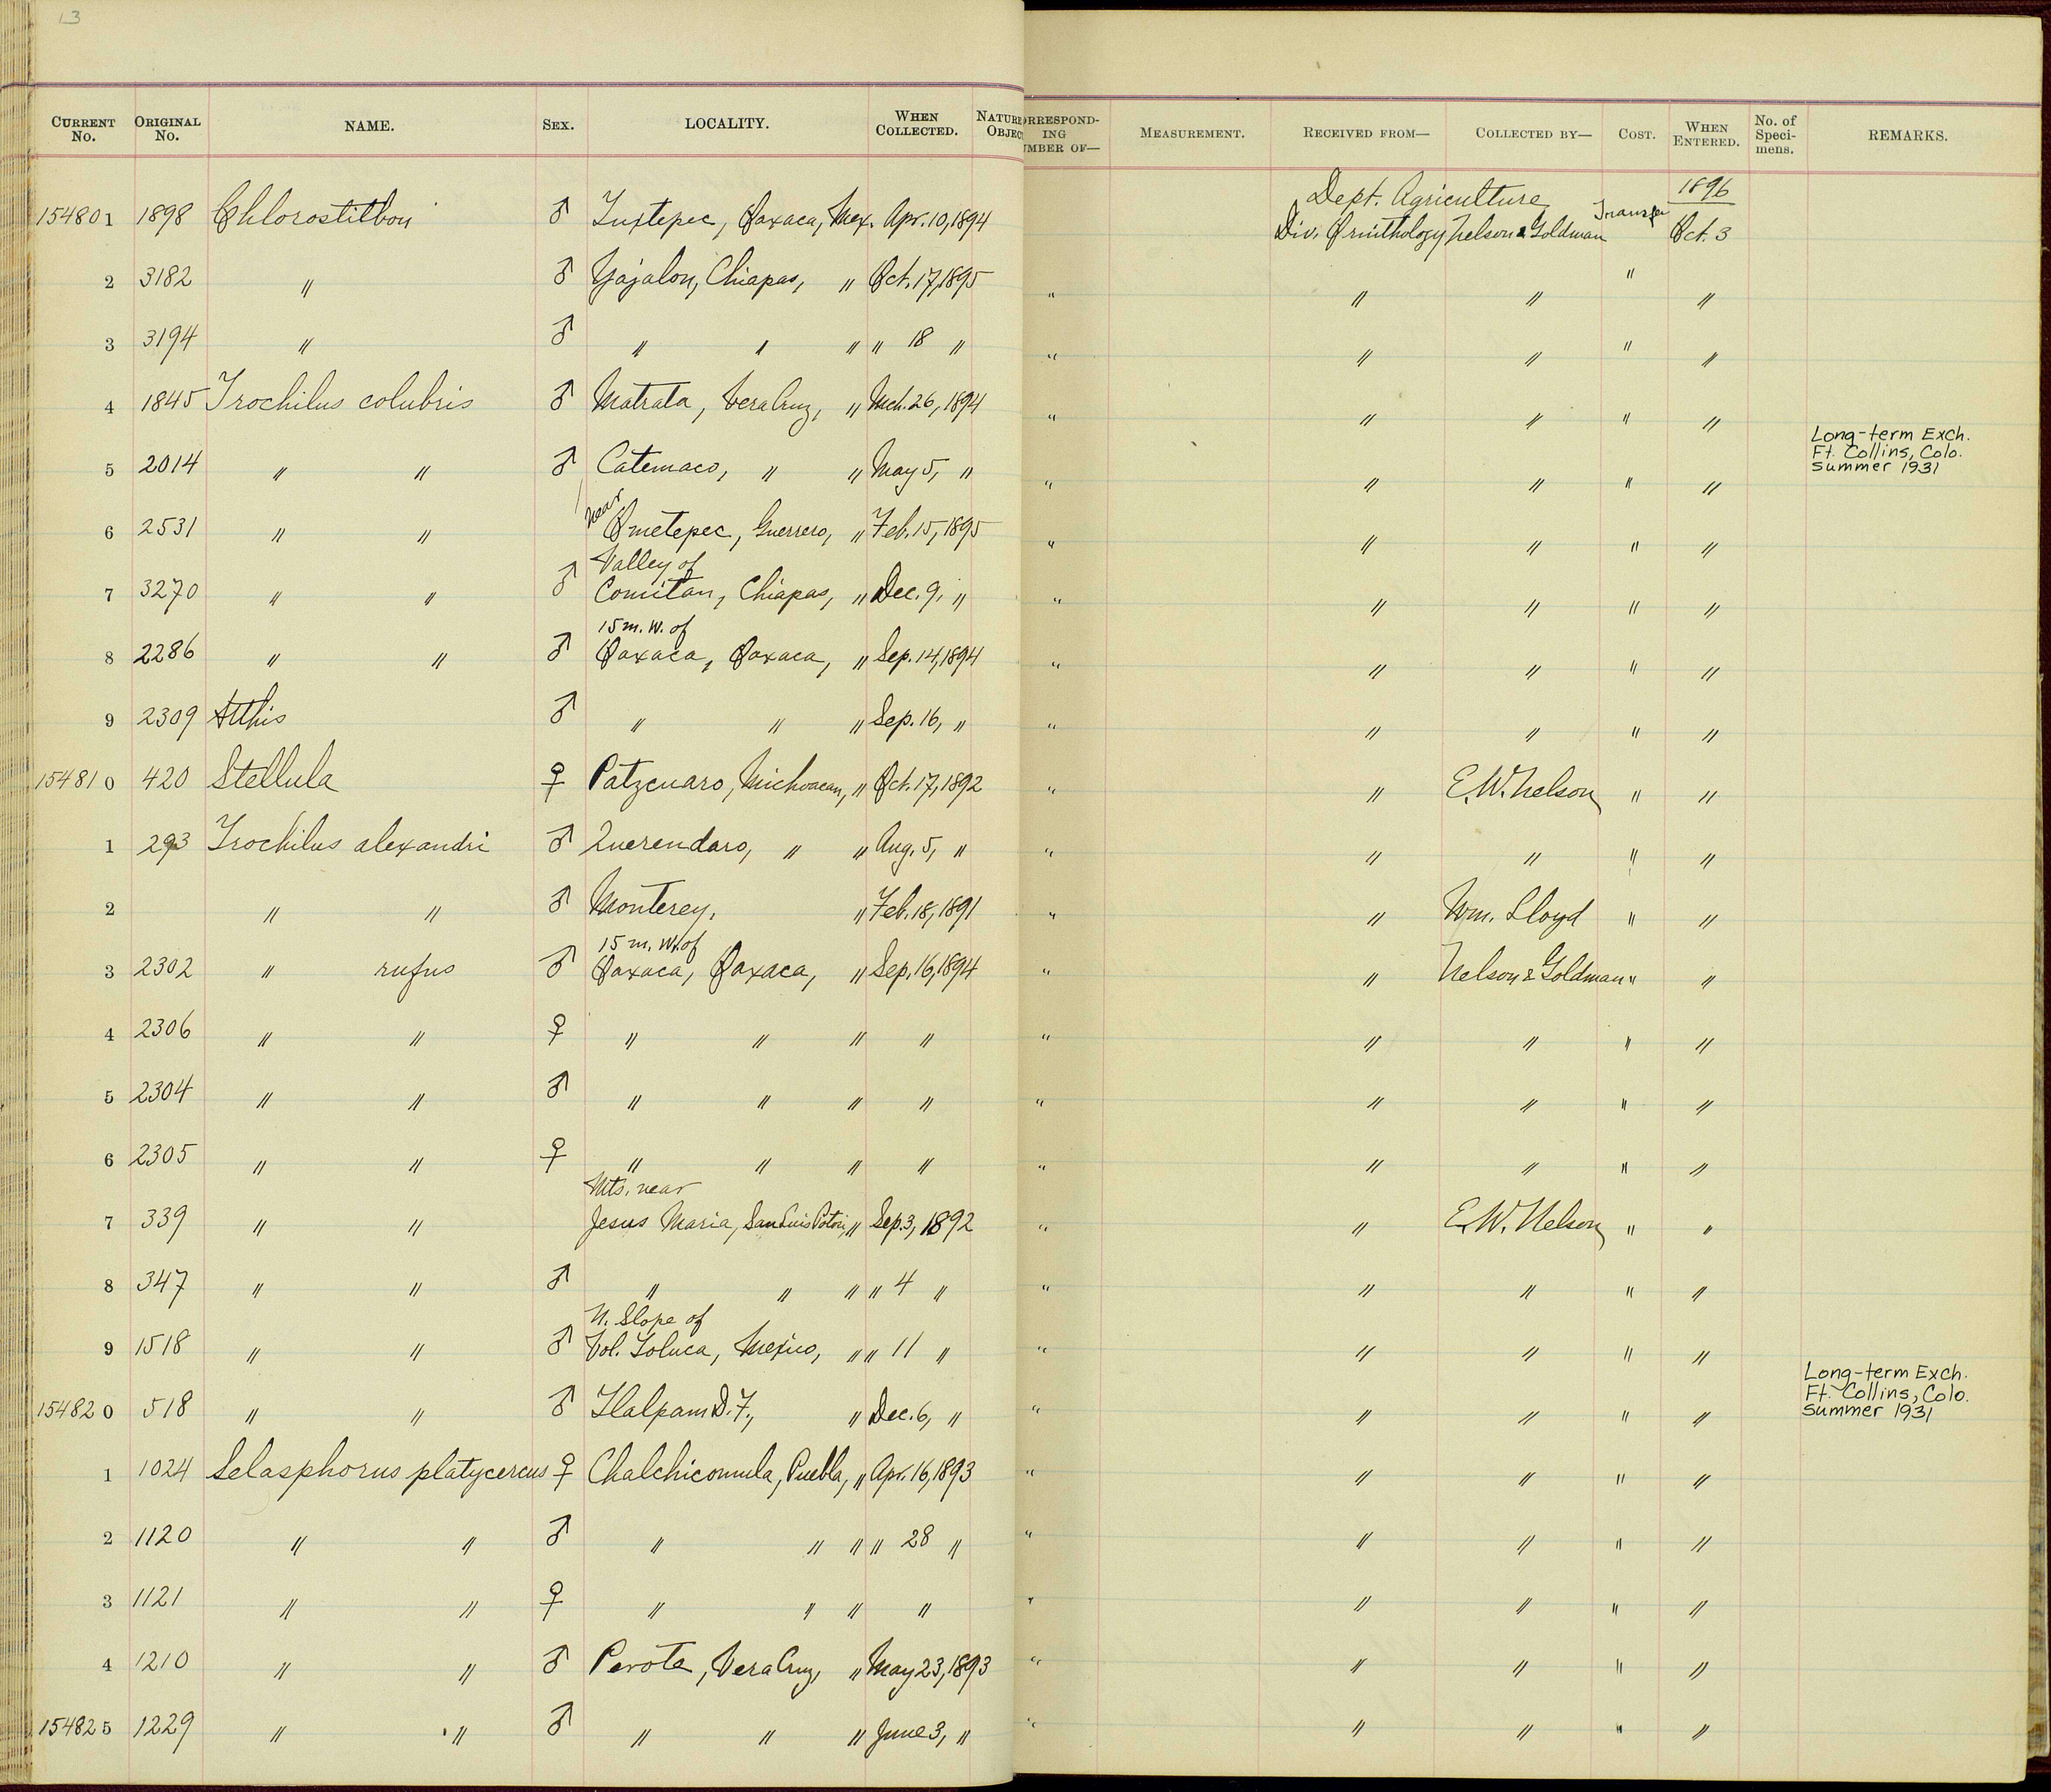 13
CURRENT No. ORIGINAL No. NAME. SEX. LOCALITY. WHEN COLLECTED. NATURE OBJECT CORRESPONDING NUMBER OF— MEASUREMENT. RECEIVED FROM— COLLECTED BY— COST. WHEN ENTERED. No. of Specimens. REMARKS.
Dept. Agriculture 1896
154801 1898 Chlorostilbon ♂ Tuxtepec, Oaxaca, Mex. Apr. 10, 1894 Div. Ornithology Nelson & Goldman Transfer Oct. 3
2 3182 " ♂ Yajalon, Chiapas, " Oct. 17, 1895 " " " " "
3 3194 " ♂ " " " " 18 " " " " " "
4 1845 Trochilus colubris ♂ Matrata, Vera Cruz, " Mch. 26, 1894 " " " " "
Long-term Exch.
Ft. Collins, Colo.
Summer 1931
5 2014 " " ♂ Catemaco, " " May 5, " " " " " "
near
6 2531 " " Ometepec, Guerrero, " Feb. 15, 1895 " " " " "
Valley of
7 3270 " " ♂ Comitan, Chiapas, " Dec. 9, " " " " " "
15 m. W. of
8 2286 " " ♂ Oaxaca, Oaxaca, " Sep. 14, 1894 " " " " "
9 2309 Atthis ♂ " " " Sep. 16, " " " " " "
154810 420 Stellula ♀ Patzcuaro, Michoacan, " Oct. 17, 1892 " " E. W. Nelson " "
1 293 Trochilus alexandri ♂ Querendaro, " " Aug. 5, " " " " " "
2 " " ♂ Monterey, " Feb. 18, 1891 " " Wm. Lloyd " "
15 m. W. of
3 2302 " rufus ♂ Oaxaca, Oaxaca, " Sep. 16, 1894 " " Nelson & Goldman " "
4 2306 " " ♀ " " " " " " " " "
5 2304 " " ♂ " " " " " " " " "
6 2305 " " ♀ " " " " " " " " "
Mts. near
7 339 " " Jesus Maria, San Luis Potosi, " Sep. 3, 1892 " " E. W. Nelson " "
8 347 " " ♂ " " " " 4 " " " " " "
N. Slope of
9 1518 " " ♂ Vol. Toluca, Mexico, " " 11 " " " " " "
Long-term Exch.
Ft. Collins, Colo.
Summer 1931
154820 518 " " ♂ Tlalpam D. F., " Dec. 6, " " " " " "
1 1024 Selasphorus platycercus ♀ Chalchicomula, Puebla, " Apr. 16, 1893 " " " " "
2 1120 " " ♂ " " " " 28 " " " " " "
3 1121 " " ♀ " " " " " " " " "
4 1210 " " ♂ Perote, Vera Cruz, " May 23, 1893 " " " " "
154825 1229 " " ♂ " " " June 3, " " " " " "